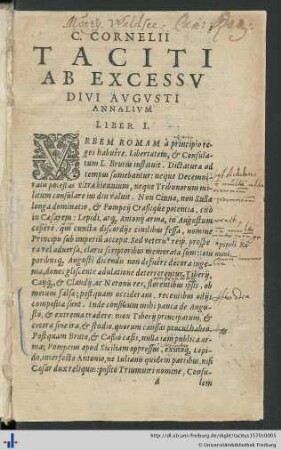 C. CORNELII
TACITI
AB EXCESSV
DIVI AVGVSTI
ANNALIVM
LIBER I.
VRBEM ROMAM à principio re-
ges habuêre. Libertatem, & Consula-
tum L. Brutus instituit. Dictaturæ ad
tempus sumebantur: neque Decemui-
ralis potestas vltra biennium, neque Tribunorum mi-
litum consulare ius diu valuit. Non Cinnæ, non Sullæ
longa dominatio, & Pompeij Crassique potentia, citò
in Cæsarem: Lepidi, atq; Antonij arma, in Augustum
cessêre: qui cuncta discordijs ciuilibus fessa, nomine
Principis sub imperiū accepit. Sed veteris reip. prospe-
ra vel aduersa, claris scriptoribus memorata sunt: tem-
poribusq; Augusti dicendis non defuêre decora inge-
nia, donec gliscente adulatione deterrerentur. Tiberij,
Caijq; & Claudij, ac Neronis res, florentibus ipsis, ob
metum falsæ: postquam occiderant, recentibus odijs
compositæ sunt. Inde consilium mihi pauca de Augu-
sto, & extrema tradere: mox Tiberij principatum, &
cetera sine ira, & studio, quorum causas procul habeo.
Postquam Bruto, & Cassio cæsis, nulla iam publica ar-
ma; Pompeius apud Siciliam oppressus, exutoq; Lepi-
do, interfecto Antonio, ne Iulianis quidem partibus, nisi
Cæsar dux reliquus: posito Triumuiri nomine, Consu-
lem
A
http://dl.ub.uni-freiburg.de/diglit/tacitus1570/0005
© Universitätsbibliothek Freiburg